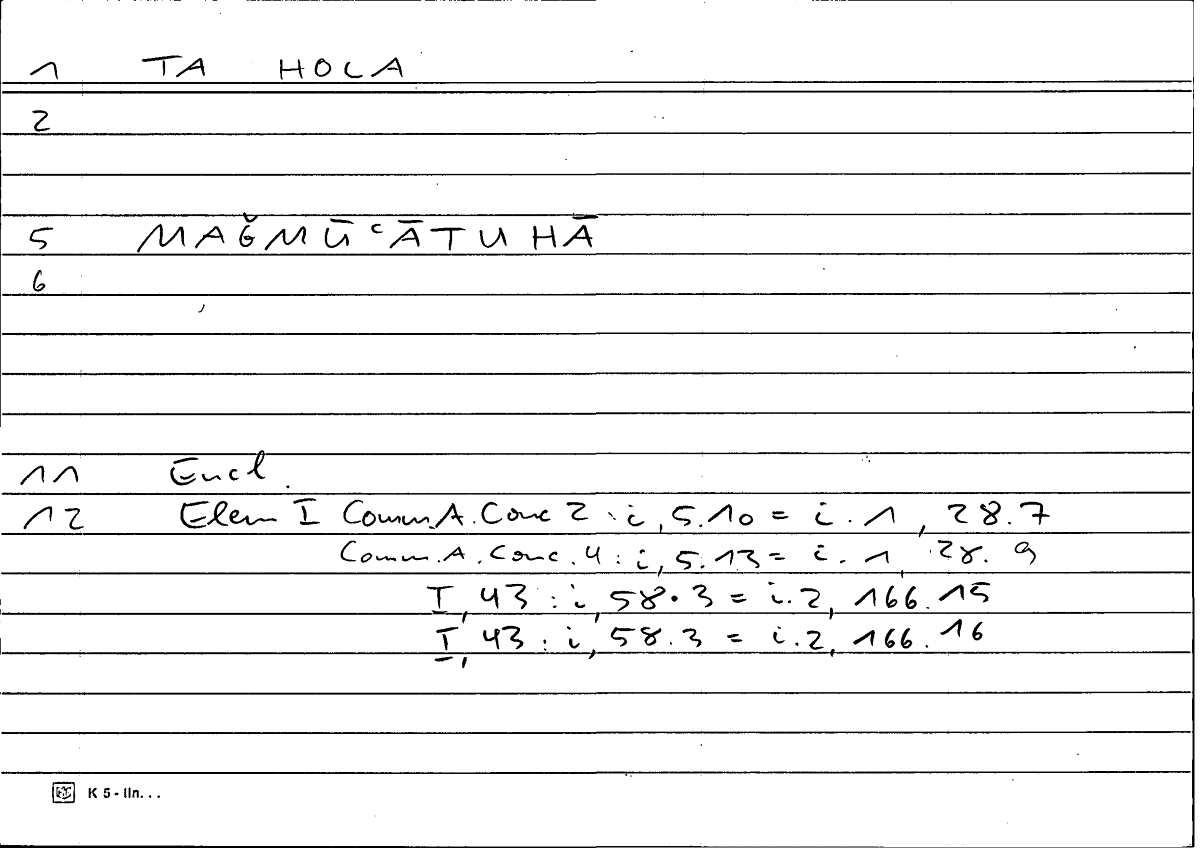 1 TA HOLA
2
5 MAǦMŪʿĀTUHĀ
6
11 Eucl.
12 Elem I Comm.A.Conc 2 : i, 5.10 = i.1, 28.7
Comm.A.Conc.4 : i, 5.13 = i.1, 28.9
I, 43 : i, 58.3 = i.2, 166.15
I, 43 : i, 58.3 = i.2, 166.16
K 5 - lin. . .